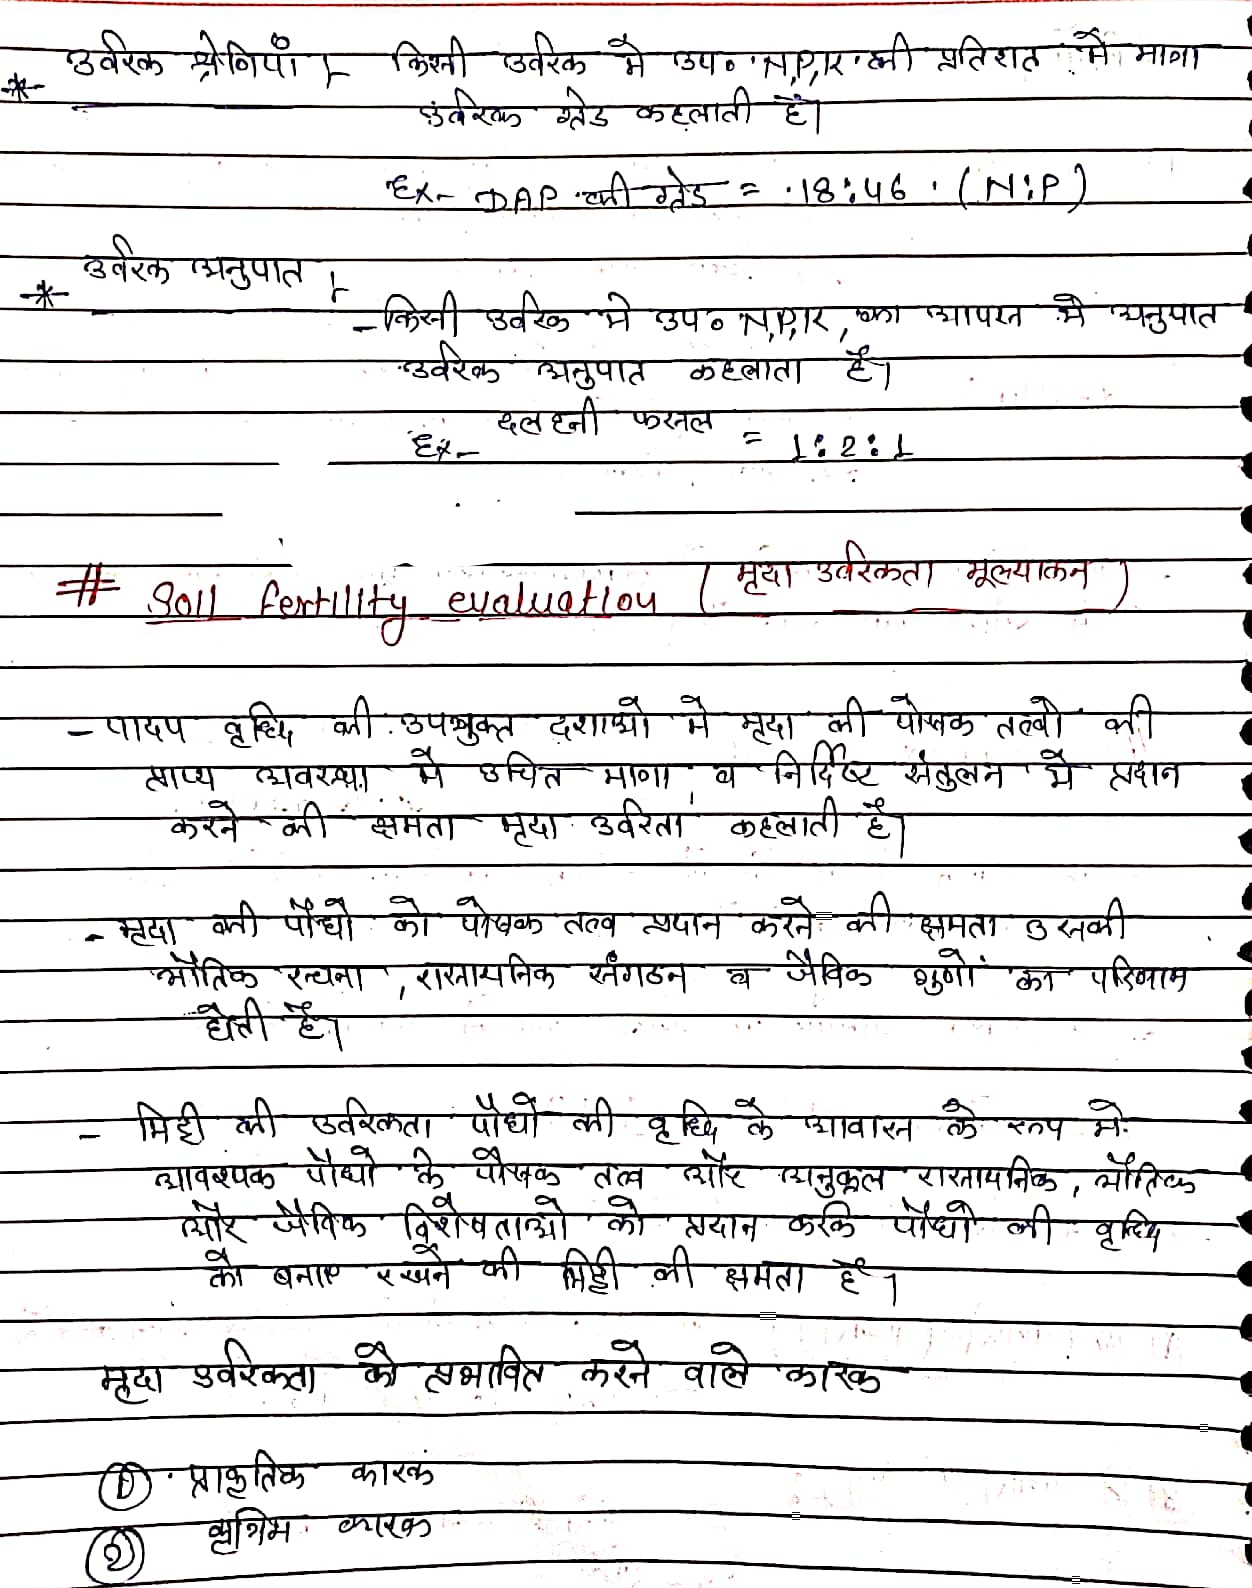 * उर्वरक श्रेणियाँ :- किसी उर्वरक मे उप० N,P,K की प्रतिशत में मात्रा
उर्वरक ग्रेड कहलाती है।
Ex- DAP की ग्रेड = 18:46 (N:P)
* उर्वरक अनुपात :-
- किसी उर्वरक मे उप० N,P,K, का आपस मे अनुपात
उर्वरक अनुपात कहलाता है।
Ex- दलहनी फसल = 1:2:1
# Soil fertility evaluation (मृदा उर्वरकता मूल्याकन)
- पादप वृध्दि की उपयुक्त दशाओ मे मृदा की पोषक तत्वो की
प्राप्य अवस्था मे उचित मात्रा व निर्दिष्ट संतुलन मे प्रदान
करने की क्षमता मृदा उर्वरता कहलाती है।
- मृदा की पौधो को पोषक तत्व प्रदान करने की क्षमता उसकी
भौतिक रचना, रासायनिक संगठन व जैविक गुणों का परिणाम
होती है।
- मिट्टी की उर्वरकता पौधो की वृध्दि के आवास के रूप मे
आवश्यक पौधो के पोषक तत्व और अनुकूल रासायनिक, भौतिक
और जैविक विशेषताओ को प्रदान करके पौधो की वृध्दि
को बनाए रखने की मिट्टी की क्षमता है।
मृदा उर्वरकता को प्रभावित करने वाले कारक
① प्राकृतिक कारक
② कृत्रिम कारक